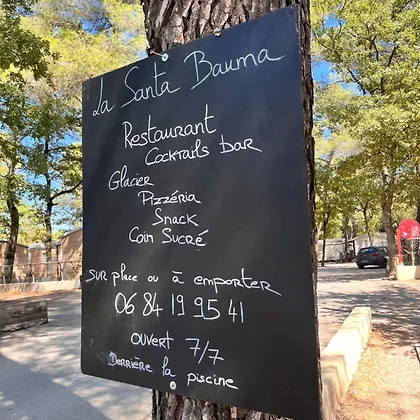 La Santa Bauma
Restaurant
Cocktails bar
Glacier
Pizzéria
Snack
Coin Sucré
sur place ou à emporter
06 84 19 95 41
ouvert 7/7
Derrière la piscine